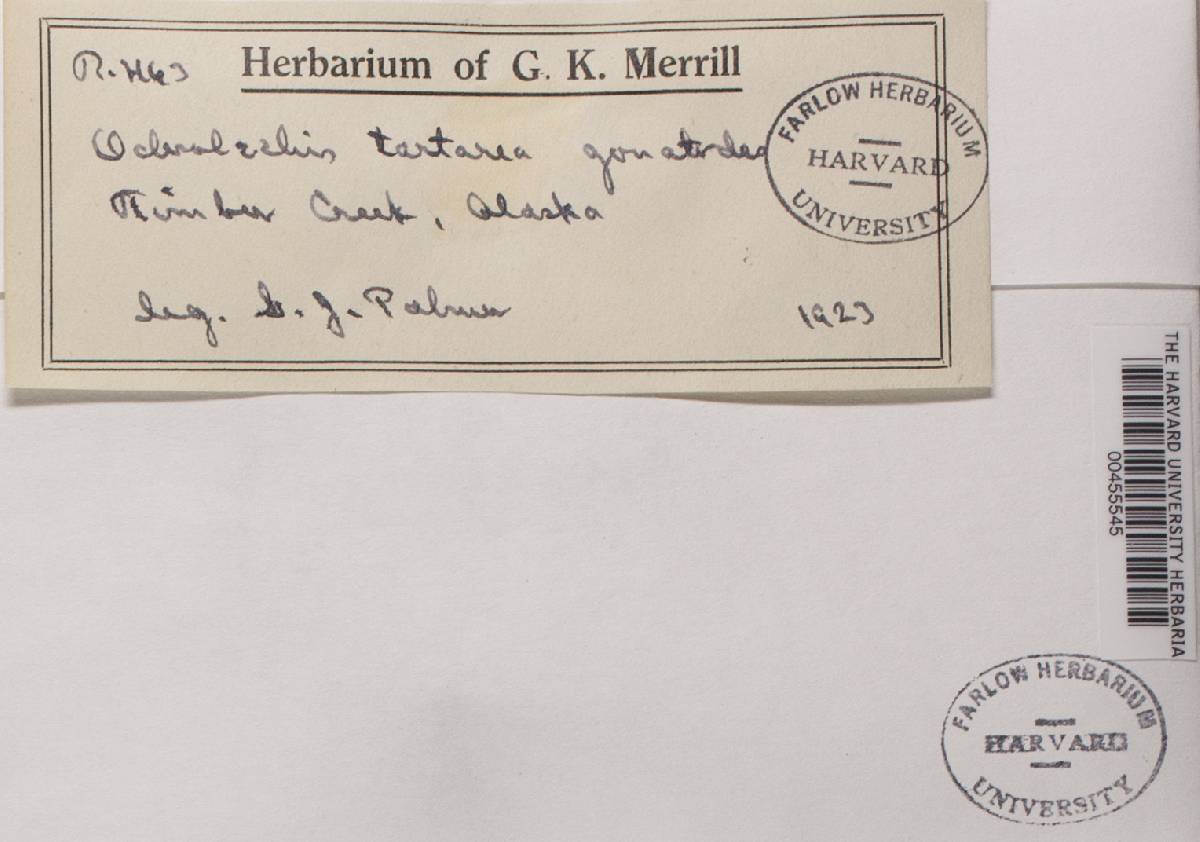 R. H63
Herbarium of G. K. Merrill
Ochrolechia tartarea gonatodes
Timber Creek, Alaska
Leg. L. J. Palmer
1923
FARLOW HERBARIUM
HARVARD
UNIVERSITY
THE HARVARD UNIVERSITY HERBARIA
00455545
FARLOW HERBARIUM
HARVARD
UNIVERSITY